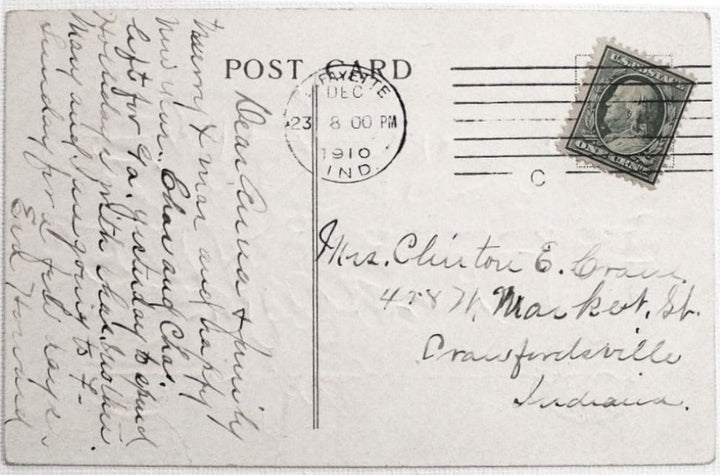 POST CARD
LAFAYETTE
DEC
23 8 00 PM
1910
IND
C
U.S. POSTAGE
ONE CENT
Dear Anna & family
Merry Xmas and happy
New Year. Chas and
left for Ga. yesterday to spend
Holidays with Chas. mother.
Mary and I are going to
Sunday for a few days.
Howard
Mrs. Clinton E.
Market. St.
Crawfordsville
Indiana.